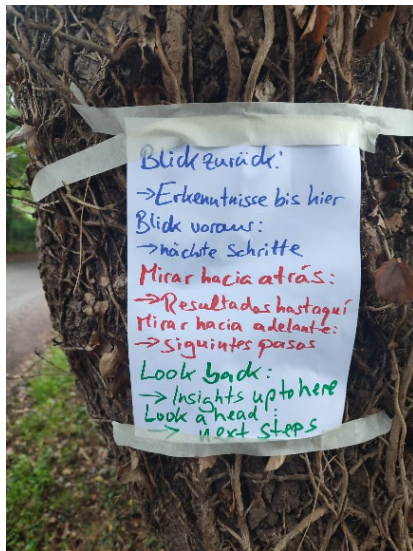 Blick zurück:
→Erkenntnisse bis hier
Blick voraus:
→nächste Schritte
Mirar hacia atrás:
→Resultados hasta aquí
Mirar hacia adelante:
→Siguintes pasos
Look back:
→Insights up to here
Look ahead:
→ next steps